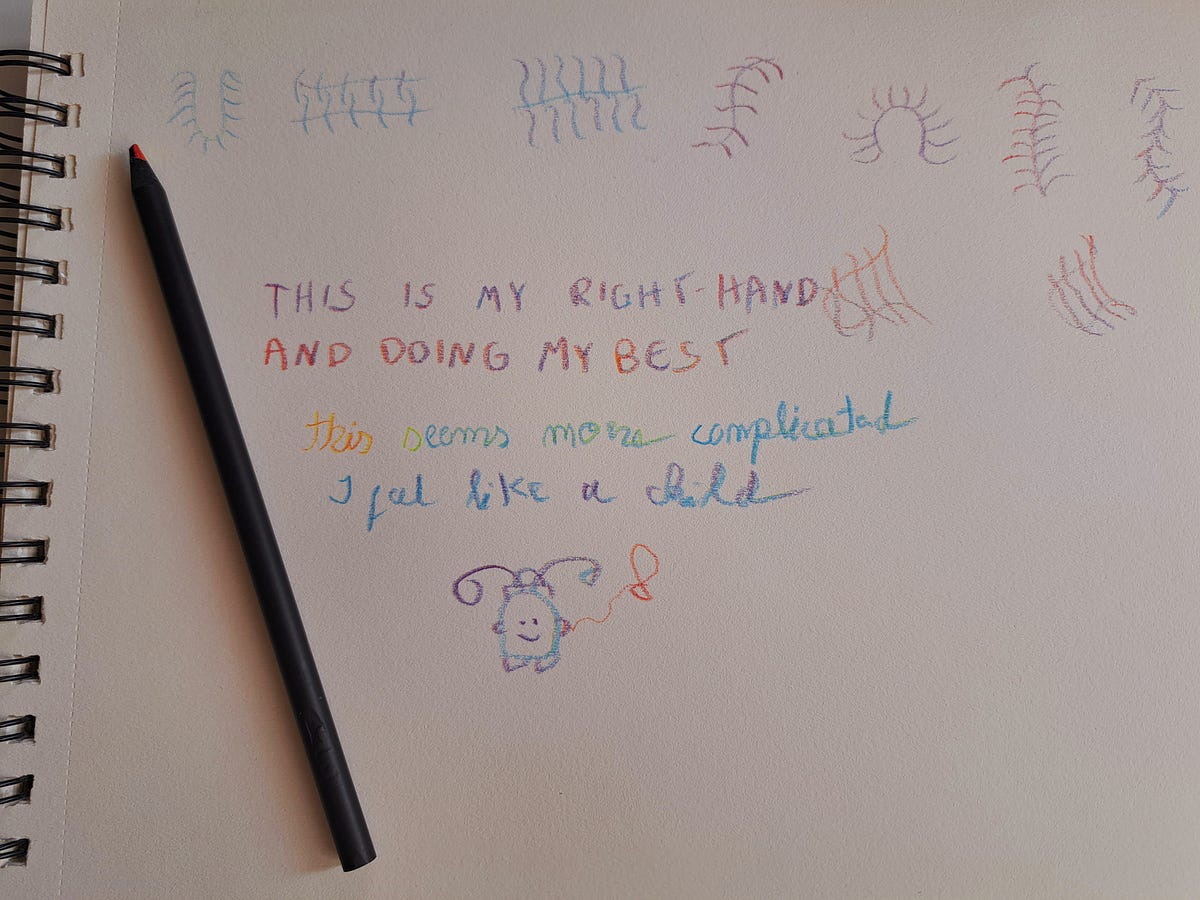 THIS IS MY RIGHT-HAND
AND DOING MY BEST
this seems more complicated
I feel like a child